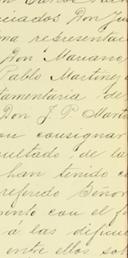 ciados Don Ju
ma representa
Don Mariano
Pablo Martinez
tamentaria de
Don J. P. Mart
consignar
sultado, de la
han tenido c
referido Señor
ento con el
á las dificul
entre ellos sob